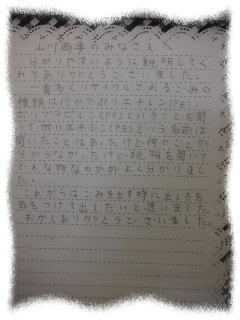 山川商事のみなさんへ
分かりやすいように説明してく
れてありがとうございました。
一番多くリサイクルされるごみの
種類は何かでポリエチレン(PE)
ポリプロピレン(PP)ということを聞
いてポリエチレン(PE)という名前は
聞いたことはあったけど何のことか
分からなかったけど説明を聞いて
どんな物なのかがよく分かりまし
た。
これからはごみを出す時に出し方を
気をつけて出したいと思いました。
おかしありがとうございました。